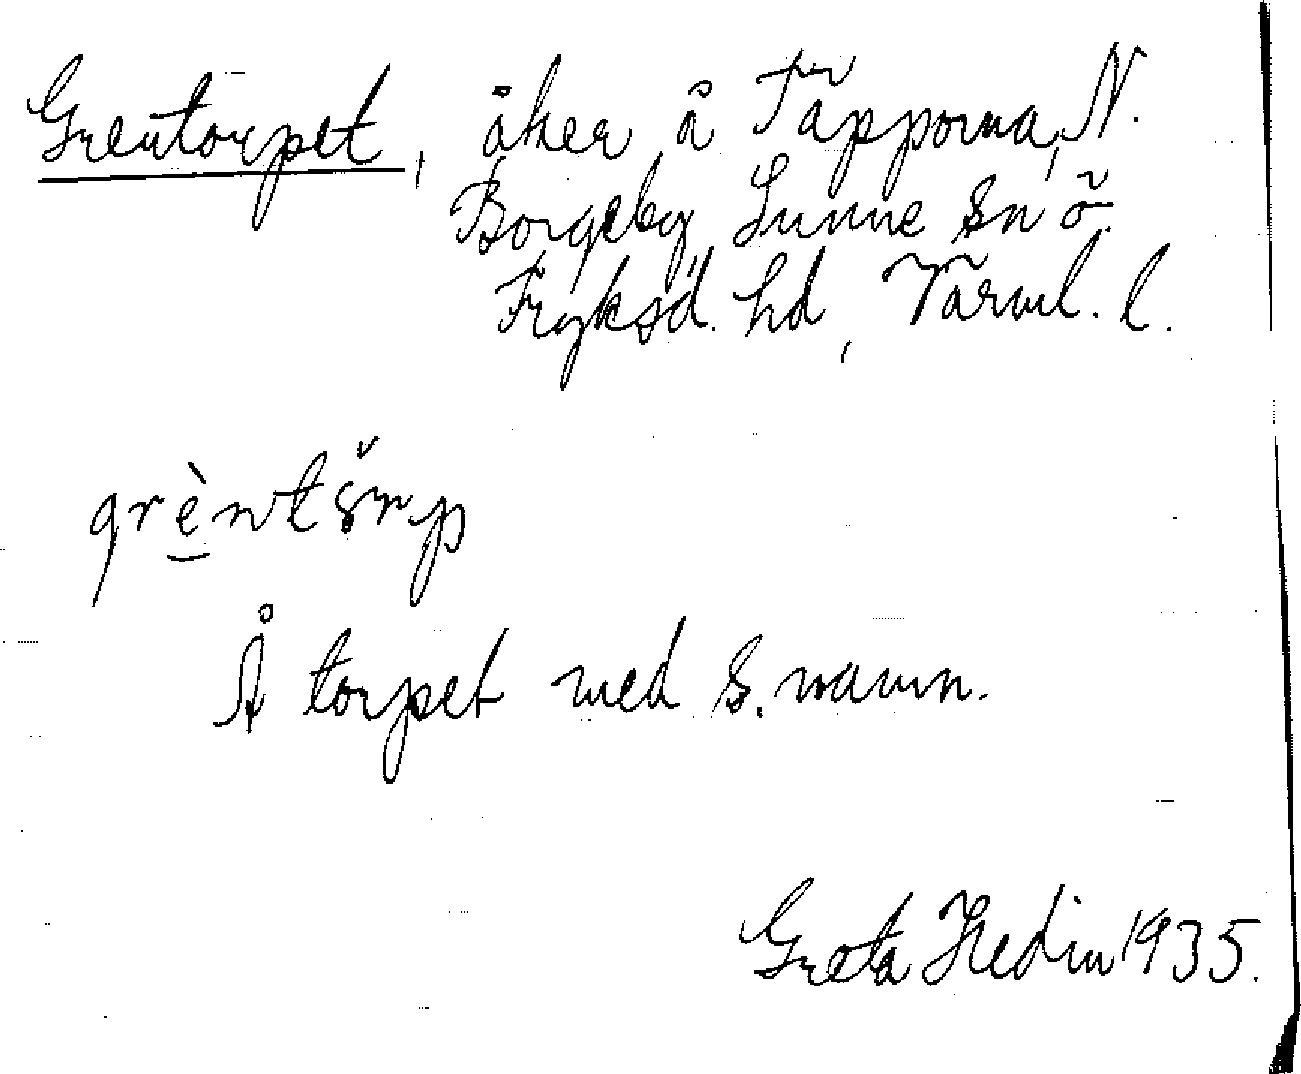 Grentorpet, åker å Täpporna, N.
Borgeby, Sunne sn ö.
Fryksd. hd, Värml. l.
grèntŏrp
Å torpet med s. namn.
Greta Hedin 1935.